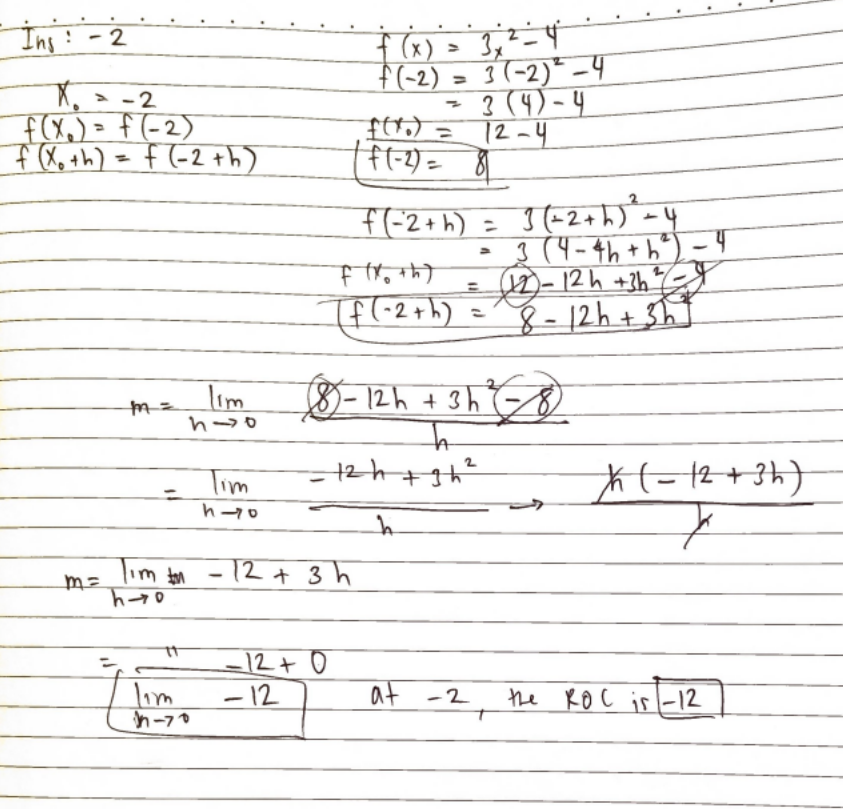 Ins : -2
X₀ = -2
f(X₀) = f(-2)
f(X₀+h) = f(-2+h)
f(x) = 3x²-4
f(-2) = 3(-2)²-4
= 3(4)-4
f(X₀) = 12-4
f(-2) = 8
f(-2+h) = 3(-2+h)²-4
= 3(4-4h+h²)-4
f(X₀+h) = 12-12h+3h²-4
f(-2+h) = 8-12h+3h²
m = lim h→0 8-12h+3h²-8 / h
= lim h→0 -12h+3h² / h → h(-12+3h) / h
m = lim h→0 -12+3h
= " -12+0
lim h→0 -12 at -2, the ROC is -12